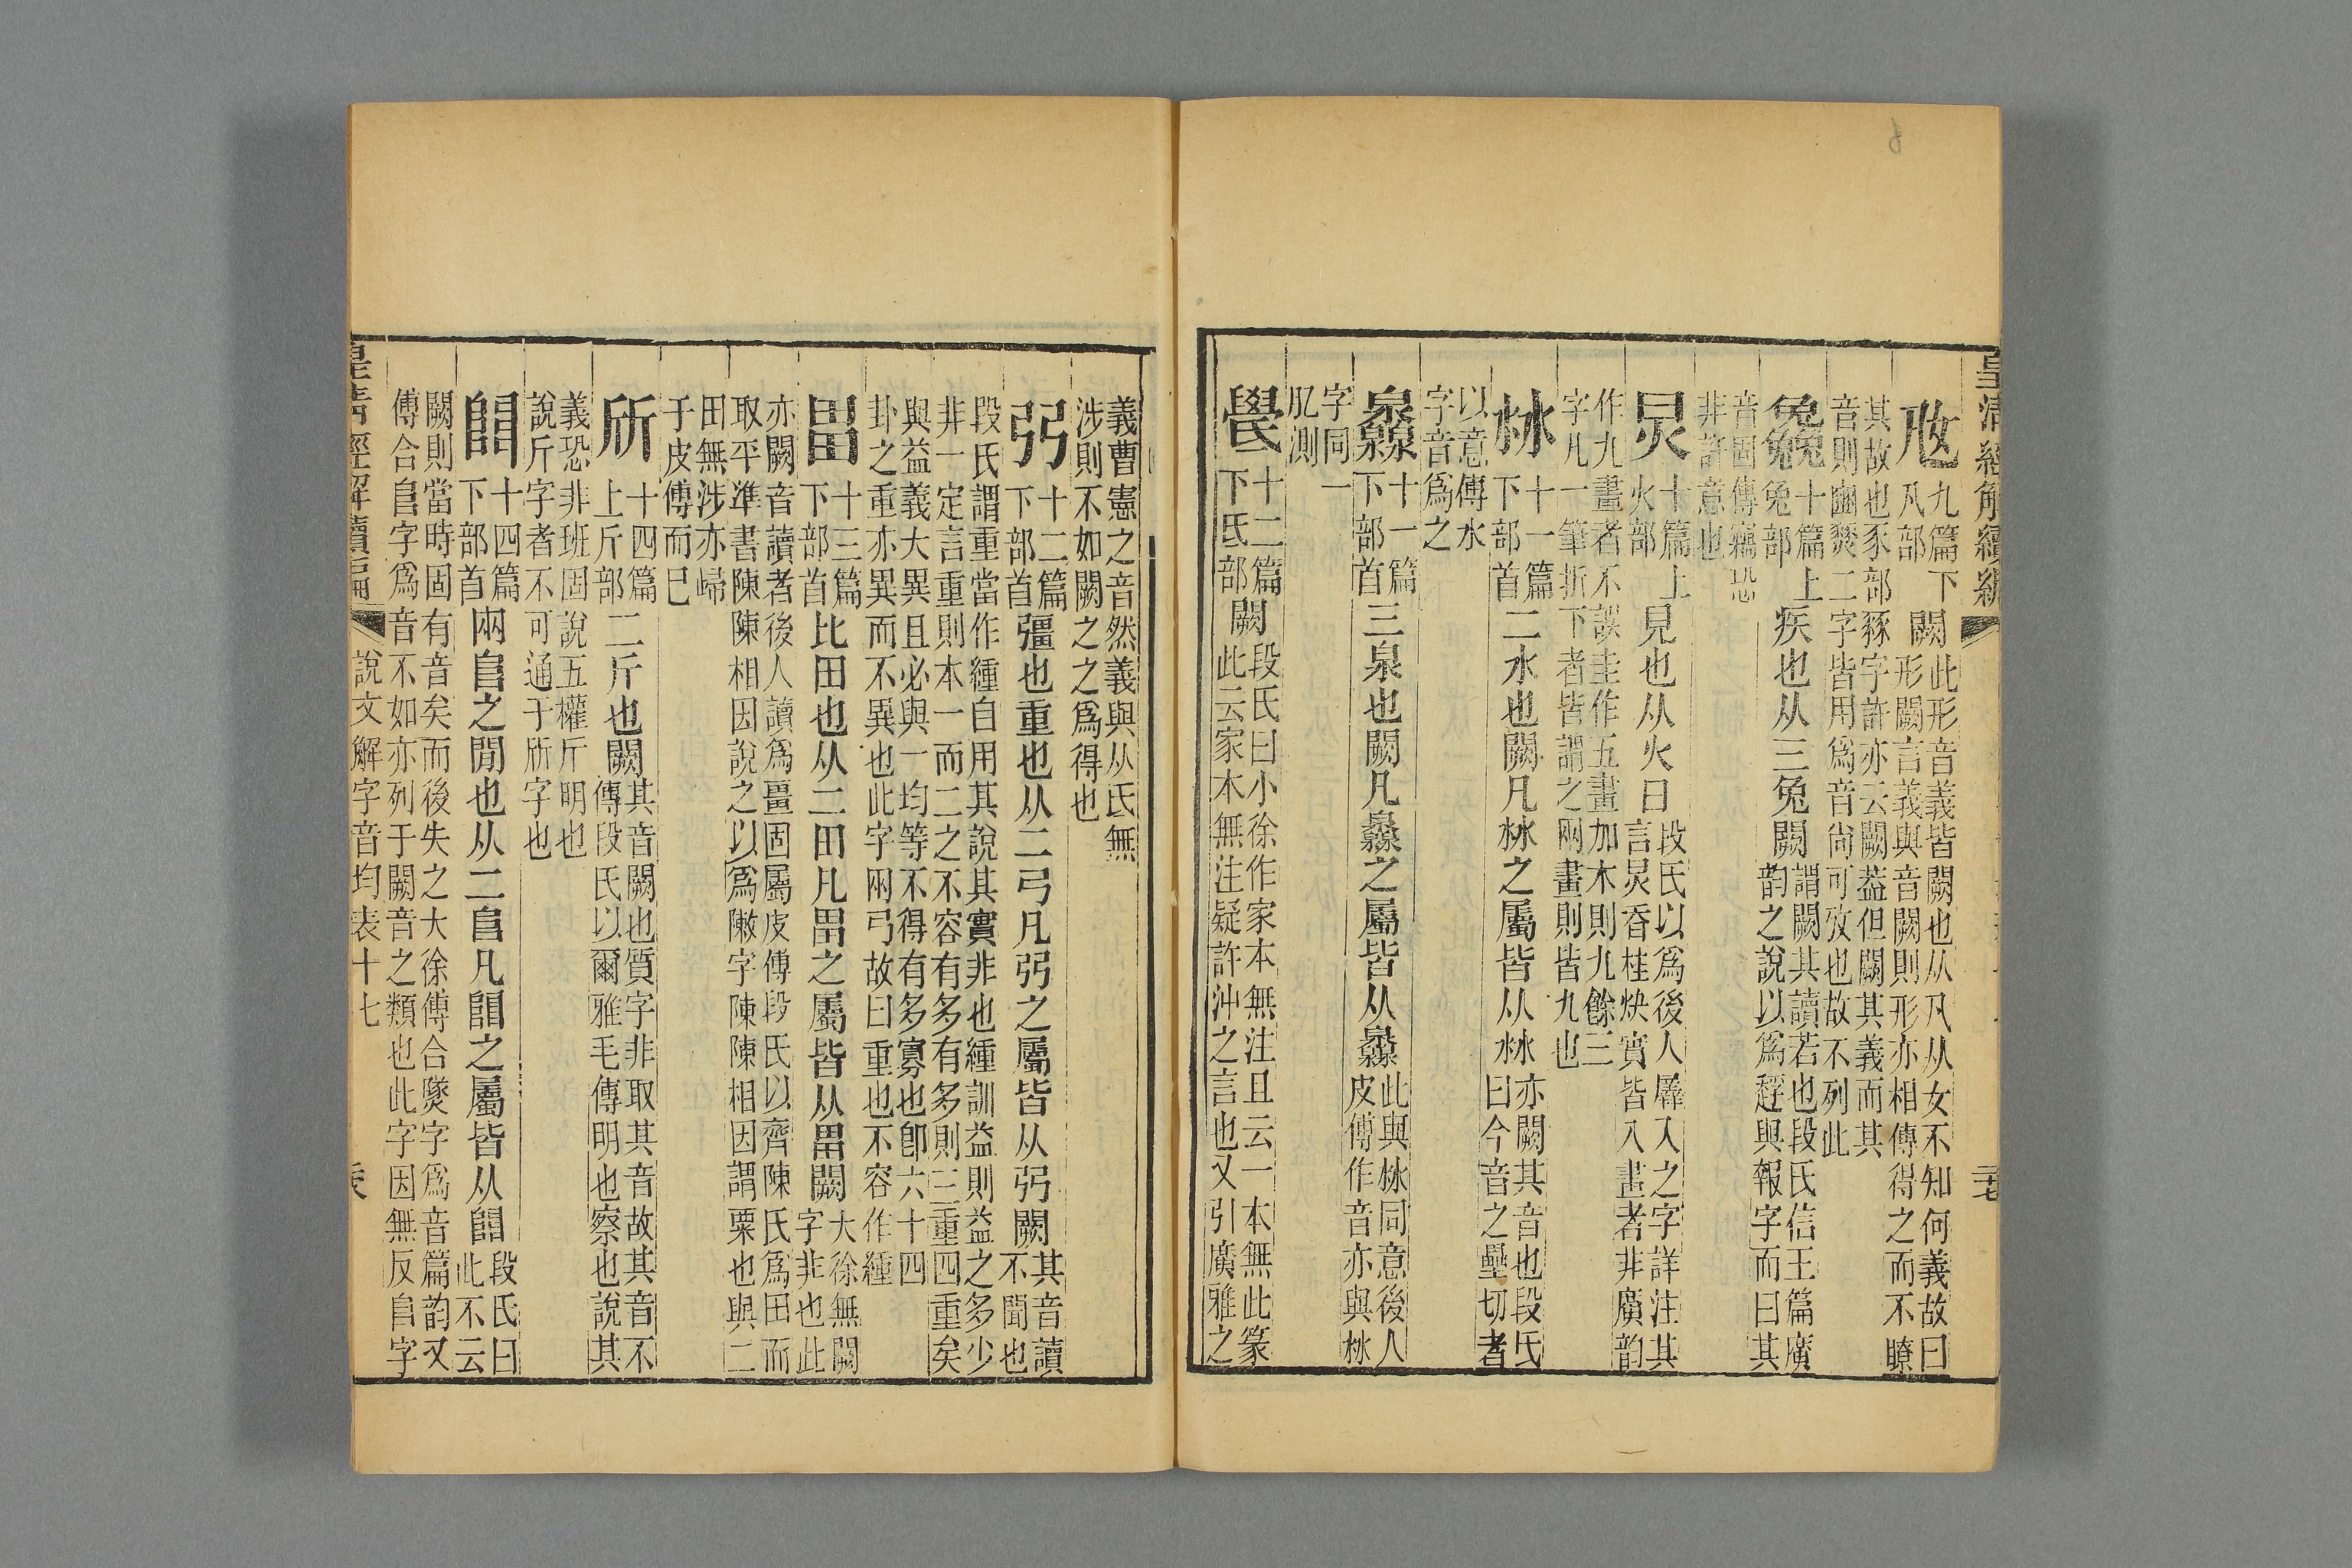 皇清經解續編
九篇下
𠨲部闕此形音義皆闕也从𠃨从女不知何義故曰
形闕言義與音闕則形亦相傳得之而不瞭
其故也豕部豩字許亦云闕葢但闕其義而其
音則豳燹二字皆用爲音尙可攷也故不列此
十篇上
兔部疾也从三兔闕謂闕其讀若也段氏信王篇廣
韵之說以爲趕與報字而曰其
音固傳竊恐
非許意也
炅十篇上
火部見也从火日段氏以爲後人羼入之字詳注其
言炅香桂炔實皆入畫者非廣韵
作九畫者不誤圭作五畫加木則九餘三
字凡一筆折下者皆謂之兩畫則皆九也
沝十一篇
下部首二水也闕凡沝之屬皆从沝亦闕其音也段氏
曰今音之壘切者
以意傅水
字音爲之
灥十一篇
下部首三泉也闕凡灥之屬皆从灥此與沝同意後人
皮傅作音亦與沝
字同一
肊測
十二篇
下氏部闕段氏曰小徐作家本無注且云一本無此篆
此云家本無注疑許沖之言也又引廣雅之
二十七
義曹憲之音然義與从氏無
涉則不如闕之之爲得也
弜十二篇
下部首彊也重也从二弓凡弜之屬皆从弜闕其音讀
不聞也
段氏謂重當作緟自用其說其實非也緟訓益則益之多少
非一定言重則本一而二之不容有多有多則三重四重矣
與益義大異且必與一均等不得有多寡也卽六十四
卦之重亦異而不異也此字兩弓故曰重也不容作緟
畕十三篇
下部首比田也从二田凡畕之屬皆从畕闕大徐無闕
字非也此
亦闕音讀者後人讀爲畺固屬皮傅段氏以齊陳氏爲田而
取平準書陳陳相因說之以爲敶字陳陳相因謂粟也與二
田無涉亦歸
于皮傅而巳
斦十四篇
上斤部二斤也闕其音闕也質字非取其音故其音不
傳段氏以爾雅毛傳明也察也說其
義恐非班固說五權斤明也
說斤字者不可通于斦字也
𨺅十四篇
下部首兩𨸏之閒也从二𨸏凡𨺅之屬皆从𨺅段氏曰
此不云
闕則當時固有音矣而後失之大徐傅合䥙字爲音篇韵又
傅合𨸏字爲音不如亦列于闕音之類也此字因無反𨸏字
皇清經解續編
說文解字音均表十七